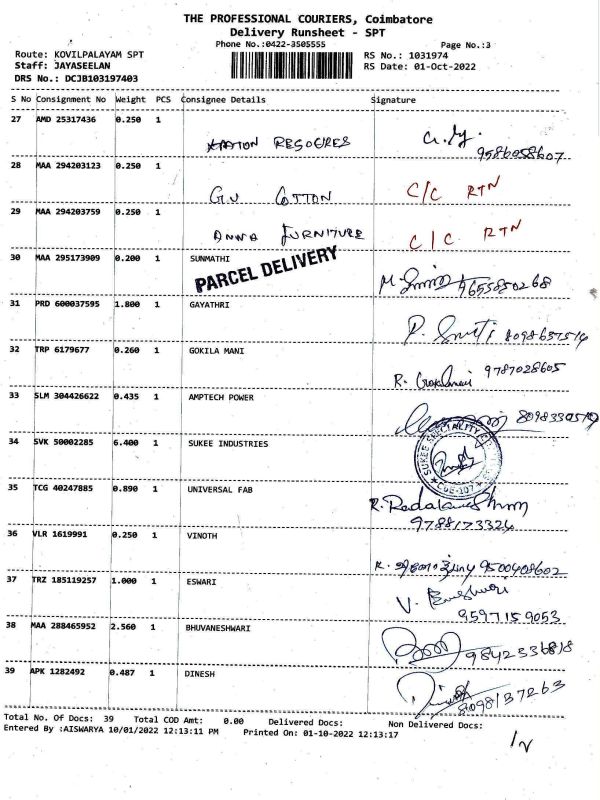 THE PROFESSIONAL COURIERS, Coimbatore
Delivery Runsheet - SPT
Phone No.:0422-3505555 Page No.:3
Route: KOVILPALAYAM SPT RS No.: 1031974
Staff: JAYASEELAN RS Date: 01-Oct-2022
DRS No.: DCJB103197403
S No Consignment No Weight PCS Consignee Details Signature
27 AMD 25317436 0.250 1
RESOERES
9586058607
28 MAA 294203123 0.250 1
G.V COTTON C/C RTN
29 MAA 294203759 0.250 1
ANNA FURNITURE C/C RTN
30 MAA 295173909 0.200 1 SUNMATHI
PARCEL DELIVERY
9655880268
31 PRD 600037595 1.800 1 GAYATHRI
P. 8098637514
32 TRP 6179677 0.260 1 GOKILA MANI
R. 9787028605
33 SLM 304426622 0.435 1 AMPTECH POWER
34 SVK 50002285 6.400 1 SUKEE INDUSTRIES
SUKEE SPECIALITY
COE-107
35 TCG 40247885 0.890 1 UNIVERSAL FAB
R.
9788173324
36 VLR 1619991 0.250 1 VINOTH
9500408602
37 TRZ 185119257 1.000 1 ESWARI
V. Eeshwari
9597159053
38 MAA 288465952 2.560 1 BHUVANESHWARI
9842336818
39 APK 1282492 0.487 1 DINESH
8098137263
Total No. Of Docs: 39 Total COD Amt: 0.00 Delivered Docs: Non Delivered Docs:
Entered By :AISWARYA 10/01/2022 12:13:11 PM Printed On: 01-10-2022 12:13:17